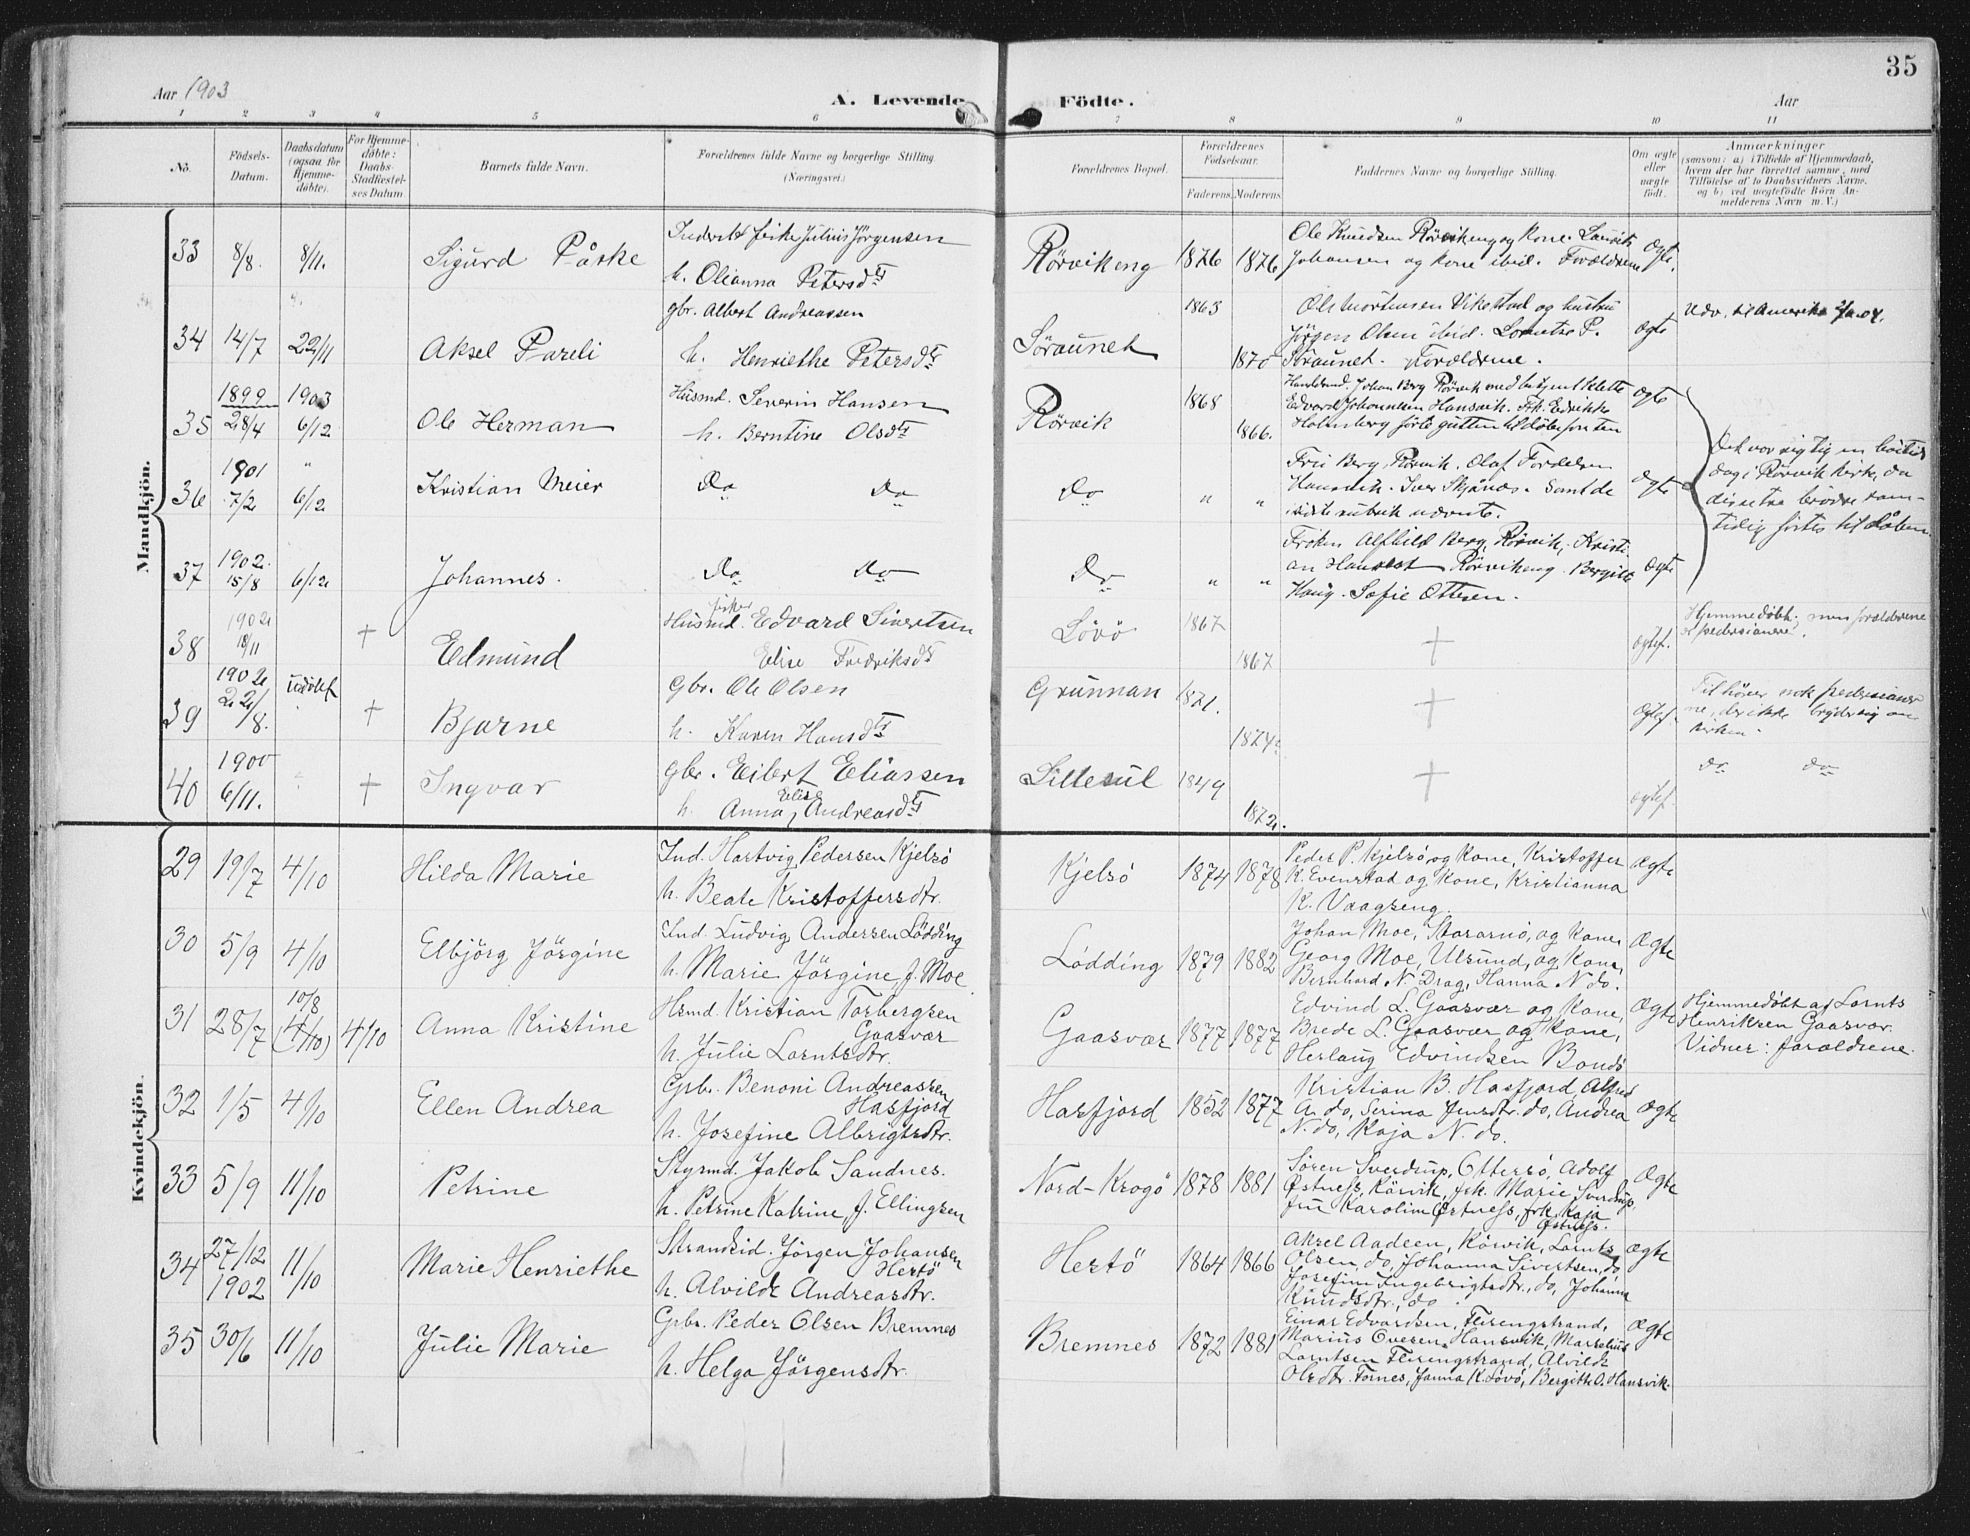 35
Aar 1903
A. Levende Födte.
Aar
1 2 3 4 5 6 7 8 9 10 11
No.
Födsels-Datum.
Daabsdatum (ogsaa for Hjemmedøbte).
For Hjemmedøbte: Daabs-Stadfæstelses Datum
Barnets fulde Navn.
Forældrenes fulde Navne og borgerlige Stilling. (Næringsvei.)
Forældrenes Bopæl.
Forældrenes Fødselsaar.
Faderens. Moderens.
Faddernes Navne og borgerlige Stilling.
Om ægte eller uægte födt.
Anmærkninger
(saasom: a) i Tilfælde af Hjemmedaab,
hvem der har forrettet samme, med
Tilföielse af to Daabsvidners Navne,
og b) ved uægtefödte Börn An-
melderens Navn m. V.)
Mandkjön.
33 8/8. 8/11. Sigurd Påske
Julius Jörgensen
h. Olianna Petersdtr
Rörvikeng 1876 1876
Ole Knudsen Rörvikeng og kone. Laurits
Johansen og kone ibid. Forældrene
Ægte.
34 14/7 22/11 Aksel Pareli
gbr. Albert Andreassen
h. Henriethe Petersdtr
Söraunet 1863 1870
Vikestad og hustru
Jörgen Olsen ibid. P.
Söraunet. Forældrene.
ægte
Udv. til Amerika
35 1899 28/4 1903 6/12 Ole Herman
Husmd. Severin Hansen
h. Berntine Olsdtr
Rörvik 1868 1866.
Johan Berg Rörvik med
Edvard Johannesen Hansvik. Frk. Edrikke
Holmberg förte gutten til döbefonten
ægte
36 1901 7/2 " 6/12 Kristian Meier
Do Do
Do " "
Fru Berg, Rörvik. Olaf
Hansvik. Iver Skjånes. Samt de
i sidste rubrik nævnte.
ægte
Det var rigtig en høitids
dag i Rörvik kirke, da
disse tre brödre sam-
tidig förtes til dåben
37 1902. 15/8 6/12 Johannes.
Do Do
Do " "
Fröken Alfhild Berg, Rörvik, Kristi-
an Rörvikeng. Bergitte
Haug. Sofie Ottesen.
ægte
38 1902 18/11 † Edmund
Husmd. fisker Edvard Sivertsen
Elise Fredriksdtr
Lövö 1867 1867
†
ægtef.
Hjemmedöbt, men forældrene
39 1902 22/8. udöbt † Bjarne
Gbr. Ole Olsen
h. Karen Hansdtr
Grunnan 1871. 1874.
†
ægtef.
Tilhörer nok
ne, der ikke bryder sig om
kirken.
40 1900 6/11. † Ingvar
gbr. Eilert Eliassen
h. Anna Elise Andreasdtr
Lillesul 1849 1872.
†
ægtef.
do do
Kvindekjön.
29 19/7 4/10 Hilda Marie
Ind. Hartvig Pedersen Kjelsö
h. Beate Kristoffersdtr.
Kjelsö 1874 1878
Peder P. Kjelsö og kone, Kristoffer
K. Evenstad og kone, Kristianna
K. Vaagseng.
Ægte
30 5/9 4/10 Elbjörg Jörgine
Ind. Ludvig Andersen Lödding
h. Marie Jörgine, f. Moe
Lödding 1879 1882
Johan Moe, og kone,
Georg Moe, Ulsund, og kone,
Bernhard N. Drag, Hanna N. do.
Ægte
31 28/7 10/8 (4/10) 4/10 Anna Kristine
Hsmd. Kristian Torbergsen
Gaasvær
h. Julie Lorntsdtr.
Gaasvær 1877 1877
Edvind L. Gaasvær og kone,
Brede L. Gaasvær og kone,
Herlaug Edvindsen Bondö
Ægte
Hjemmedöbt af Lornts
Henriksen Gaasvær.
Vidner: forældrene.
32 1/5 4/10 Ellen Andrea
Gbr. Benoni Andreassen
Hasfjord
h. Josefine Albrigtsdtr.
Hasfjord 1852 1877
Kristian B. Hasfjord, Alfred
A. do, Serina Jensdtr. do, Andrea
N. do, Kaja N. do.
Ægte
33 5/9 11/10 Petrine
Styrmd. Jakob Sandnes.
h. Petrine Katrine, f. Ellingsen
Nord-Krogö 1878 1881
Sören Sverdrup, Ottersö, Adolf
Östness, Rörvik, frk. Marie Sverdrup,
fru Karoline Östness, frk. Kaja
Östness.
Ægte
34 27/12 1902 11/10 Marie Henriethe
Strandsid. Jörgen Johansen
Hertö
h. Alvilde Andreasdtr.
Hertö 1864 1866
Aksel Aadeen, Rörvik, Lornts
Olsen, do, Johanna Sivertsen, do
Josefine Ingebrigtsdtr., do, Johanna
Knudsdtr., do.
Ægte
35 30/6 11/10 Julie Marie
Gbr. Peder Olsen Bremnes
h. Helga Jörgensdtr.
Bremnes 1872 1881
Einar Edvardsen, Flerengstrand,
Marius Ovesen, Hansvik, Marselius
Lorntsen Flerengstrand, Alvilde
Olsdtr. Fornes, Janna K. Lövö, Bergithe O. Hansvik.
Ægte